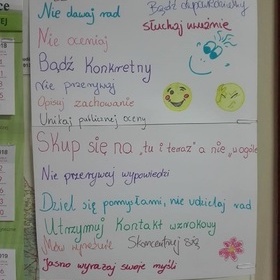 Nie dawaj rad
Bądź odpowiedzialny
Słuchaj uważnie
Nie oceniaj
Bądź Konkretny
Nie przerywaj
Opisuj zachowanie
Unikaj publicznej oceny
Skup się na "tu i teraz" a nie "wogóle
Nie przerywaj wypowiedzi
Dziel się pomysłami, nie udzielaj rad
Utrzymuj kontakt wzrokowy
Mów wyraźnie
Skoncentruj się
Jasno wyrażaj swoje myśli